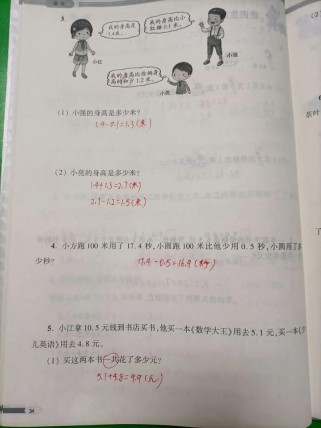 3.
我的身高是
1.4米。
我的身高比小
红矮0.1米。
小强
小红
我的身高比他俩身
高的和少1.2米。
小亮
(1) 小强的身高是多少米?
1.4-0.1=1.3(米)
(2) 小亮的身高是多少米?
1.4+1.3=2.7(米)
2.7-1.2=1.5(米)
4. 小方跑100米用了17.4秒,小圆跑100米比他少用0.5秒,小圆用了
少秒?
17.4-0.5=16.9(秒)
5. 小江拿10.5元钱到书店买书,他买一本《数学大王》用去5.1元,买一本《
儿英语》用去4.8元。
(1) 买这两本书一共花了多少元?
5.1+4.8=9.9(元)
34
(2)
茶叶